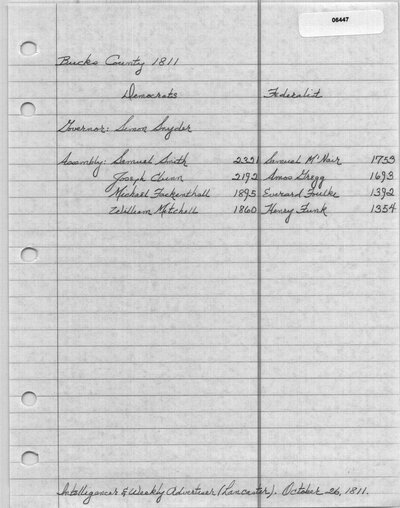 06447
Bucks County 1811
Democrats Federalist
Governor: Simon Snyder
Assembly: Samuel Smith 2351 Samuel McNair 1753
Joseph Clunn 2192 Amos Gregg 1693
Michael Fackenthall 1895 Everard Foulke 1392
William Mitchell 1860 Henry Funk 1354
Intelligencer & Weekly Advertiser (Lancaster). October 26, 1811.